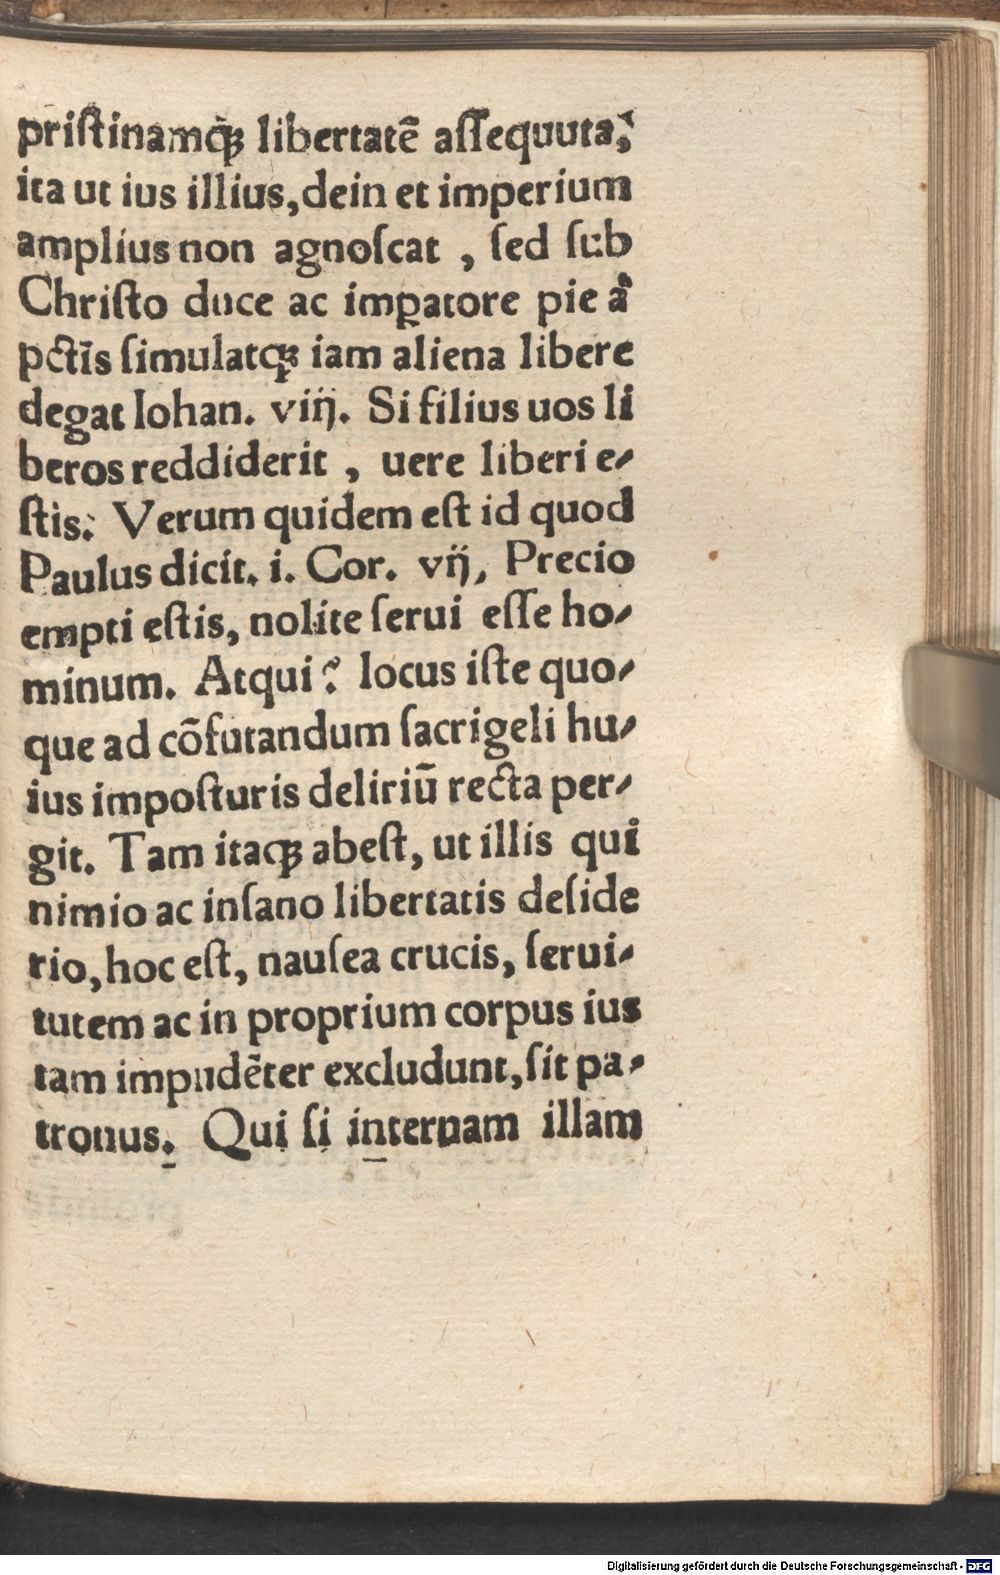 priſtinamq̃ꝫ libertatẽ aſſequuta,
ita ut ius illius, dein et imperium
amplius non agnoſcat , ſed ſub
Chriſto duce ac imꝑatore pie a
pctĩs ſimulatqꝫ iam aliena libere
degat Iohan. viij. Si filius uos li
beros reddiderit , uere liberi e⸗
ſtis. Verum quidem eſt id quod
Paulus dicit. i. Cor. vij, Precio
empti eſtis, nolite ſerui eſſe ho⸗
minum. Atqui? locus iſte quo⸗
que ad cõfutandum ſacrigeli hu⸗
ius impoſturis deliriũ recta per⸗
git. Tam itaqꝫ abeſt, ut illis qui
nimio ac inſano libertatis deſide
rio, hoc eſt, nauſea crucis, ſerui⸗
tutem ac in proprium corpus ius
tam impudẽter excludunt, ſit pa⸗
tronus. Qui ſi internam illam
Digitalisierung gefördert durch die Deutsche Forschungsgemeinschaft - DFG